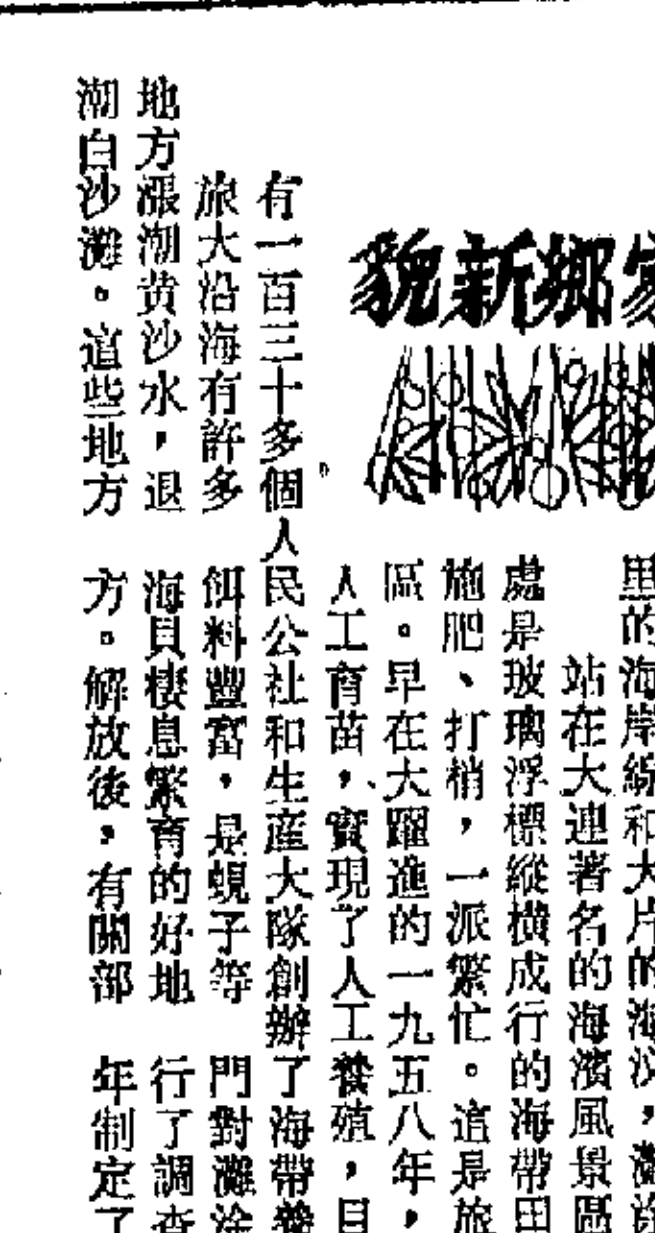 家鄉新貌
里的海岸綫和大片的海
站在大連著名的海濱風景區
處是玻璃浮標縱横成行的海帶田
施肥、打梢，一派繁忙。這是旅
區。早在大躍進的一九五八年，
人工育苗，實現了人工養殖，目
有一百三十多個人民公社和生産大隊創辦了海帶養
旅大沿海有許多
地方漲潮黄沙水，退
潮白沙灘。這些地方
餌料豐富，是蜆子等
海貝棲息繁育的好地
方。解放後，有關部
門對灘涂
行了調查
年制定了